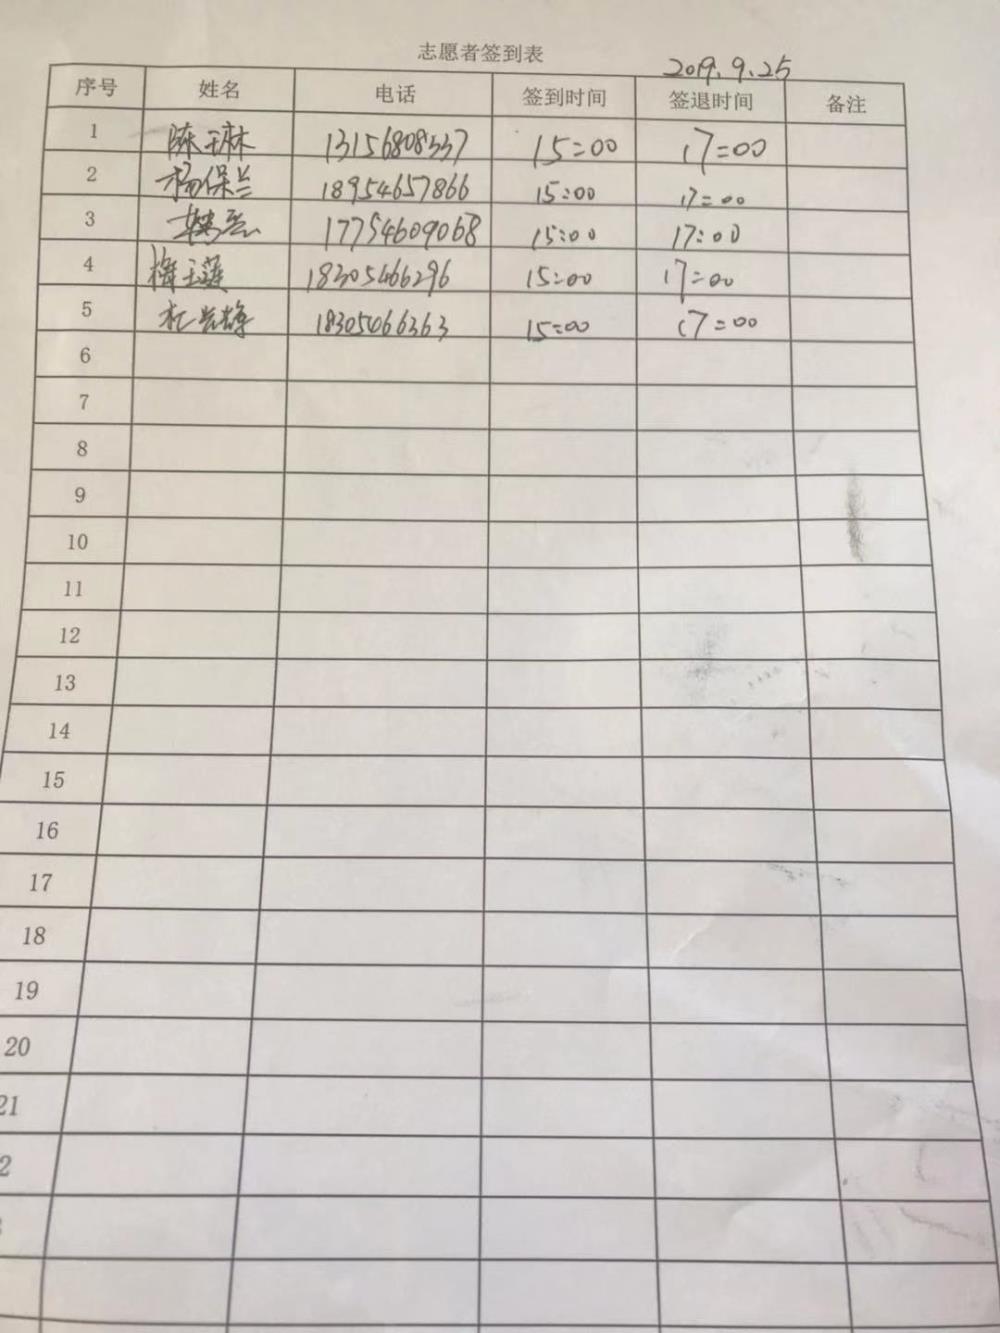 志愿者签到表
2019.9.25
序号 姓名 电话 签到时间 签退时间 备注
1 陈玉林 13156808337 15:00 17:00
2 杨保兰 18954657866 15:00 17:00
3 17754609068 15:00 17:00
4 梅玉莲 18305466296 15:00 17:00
5 18305466363 15:00 17:00
6
7
8
9
10
11
12
13
14
15
16
17
18
19
20
21
2